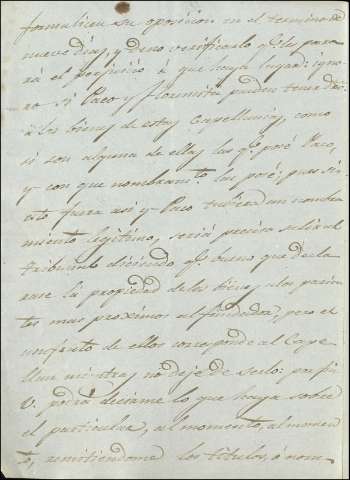 formalicen su oposicion en el termino de
nueve dias, y de no verificarlo qe. les para
rá el perjuicio á que haya lugar: igno
ro si Paco y tienen dro.
á los bienes de estas Capellanias, como
si son alguna de ellas las qe. posé Paco,
y con que nombramto. las posé; pues si
esto fuera asi y Paco tubiera un nombra
miento legitimo, seria preciso salir al
tribunal diciendo qe. bueno que decla
rase la propiedad de los bienes á los parien
tes mas proximos al fundador, pero el
usufruto de ellos corresponde al Cape
llan mientras no deje de serlo: por fin
V. podrá decirme lo que haya sobre
el particular, al momento, al momen
to, remitiendome los titulos, ó nom